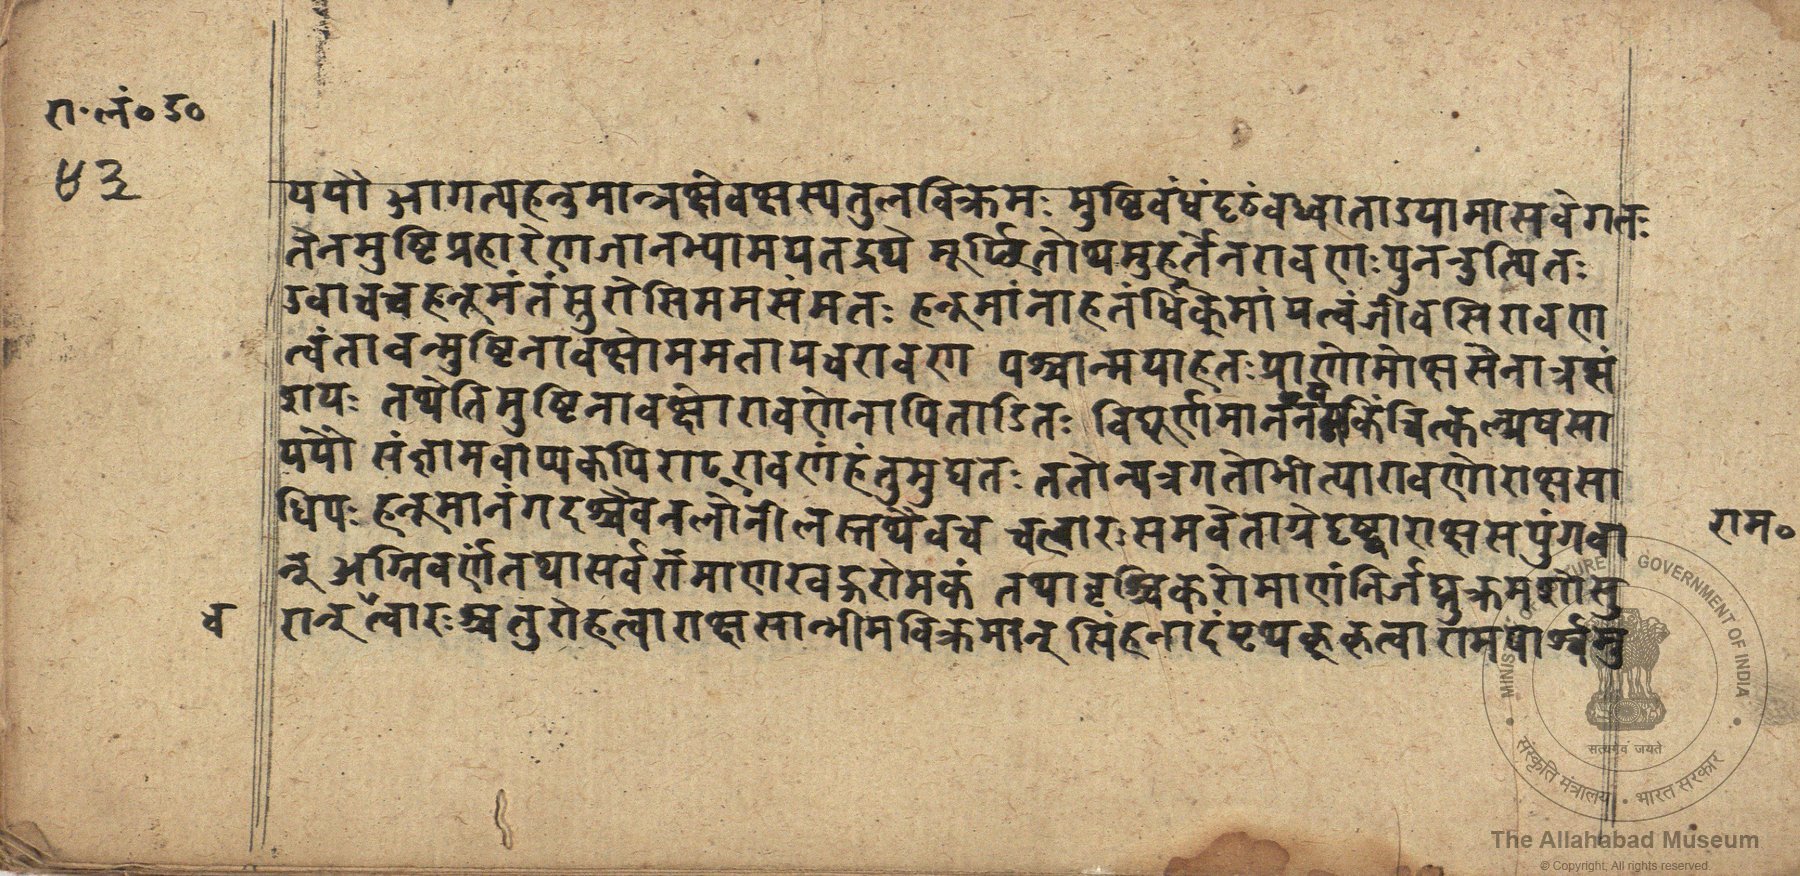 रा॰लं॰उ॰
४३
ययौ आगत्यहनुमान्रक्षोवक्षस्यतुलविक्रमः मुष्टिबंधंदृढंबध्वाताडयामासवेगतः
तेनमुष्टिप्रहारेणजानभ्यामपतद्रथे मूर्छितोथमुहूर्तेनरावणःपुनरुत्थितः
उवाचचहनूमंतंसुरोसिममसंमतः हनूमांनाहतंधिक्मांयत्वंजीवसिरावण
त्वंतावन्मुष्टिनावक्षोममताडयरावण पश्चान्मयाहतःप्राणोमोक्षसेनात्रसं
शयः तथेतिमुष्टिनावक्षोरावणेनापिताडितः विघूर्णमान किंचित्कल्मषमा
ययौ संज्ञामवाप्यकपिराट्रावणंहंतुमुद्यतः ततोन्यत्रगतोभीत्यारावणोराक्षसा
धिपः हनूमानंगदश्चैवनलोनीलस्तथैवच चत्वारःसमवेताग्रेदृष्ट्वाराक्षसपुंगवा
राम॰
न् अग्निवर्णंतथासर्परोमाणंखड्गरोमकं तथावृश्चिकरोमाणंनिर्जघ्नुक्रमशोसु
रान् त्वारःश्चतुरोहत्वाराक्षसान्भीमविक्रमान् सिंहनादंपृथक्कृत्वारामपार्श्वमु
च
MINISTRY OF CULTURE GOVERNMENT OF INDIA
सत्यमेव जयते
संस्कृति मंत्रालय • भारत सरकार
The Allahabad Museum
© Copyright, All rights reserved.